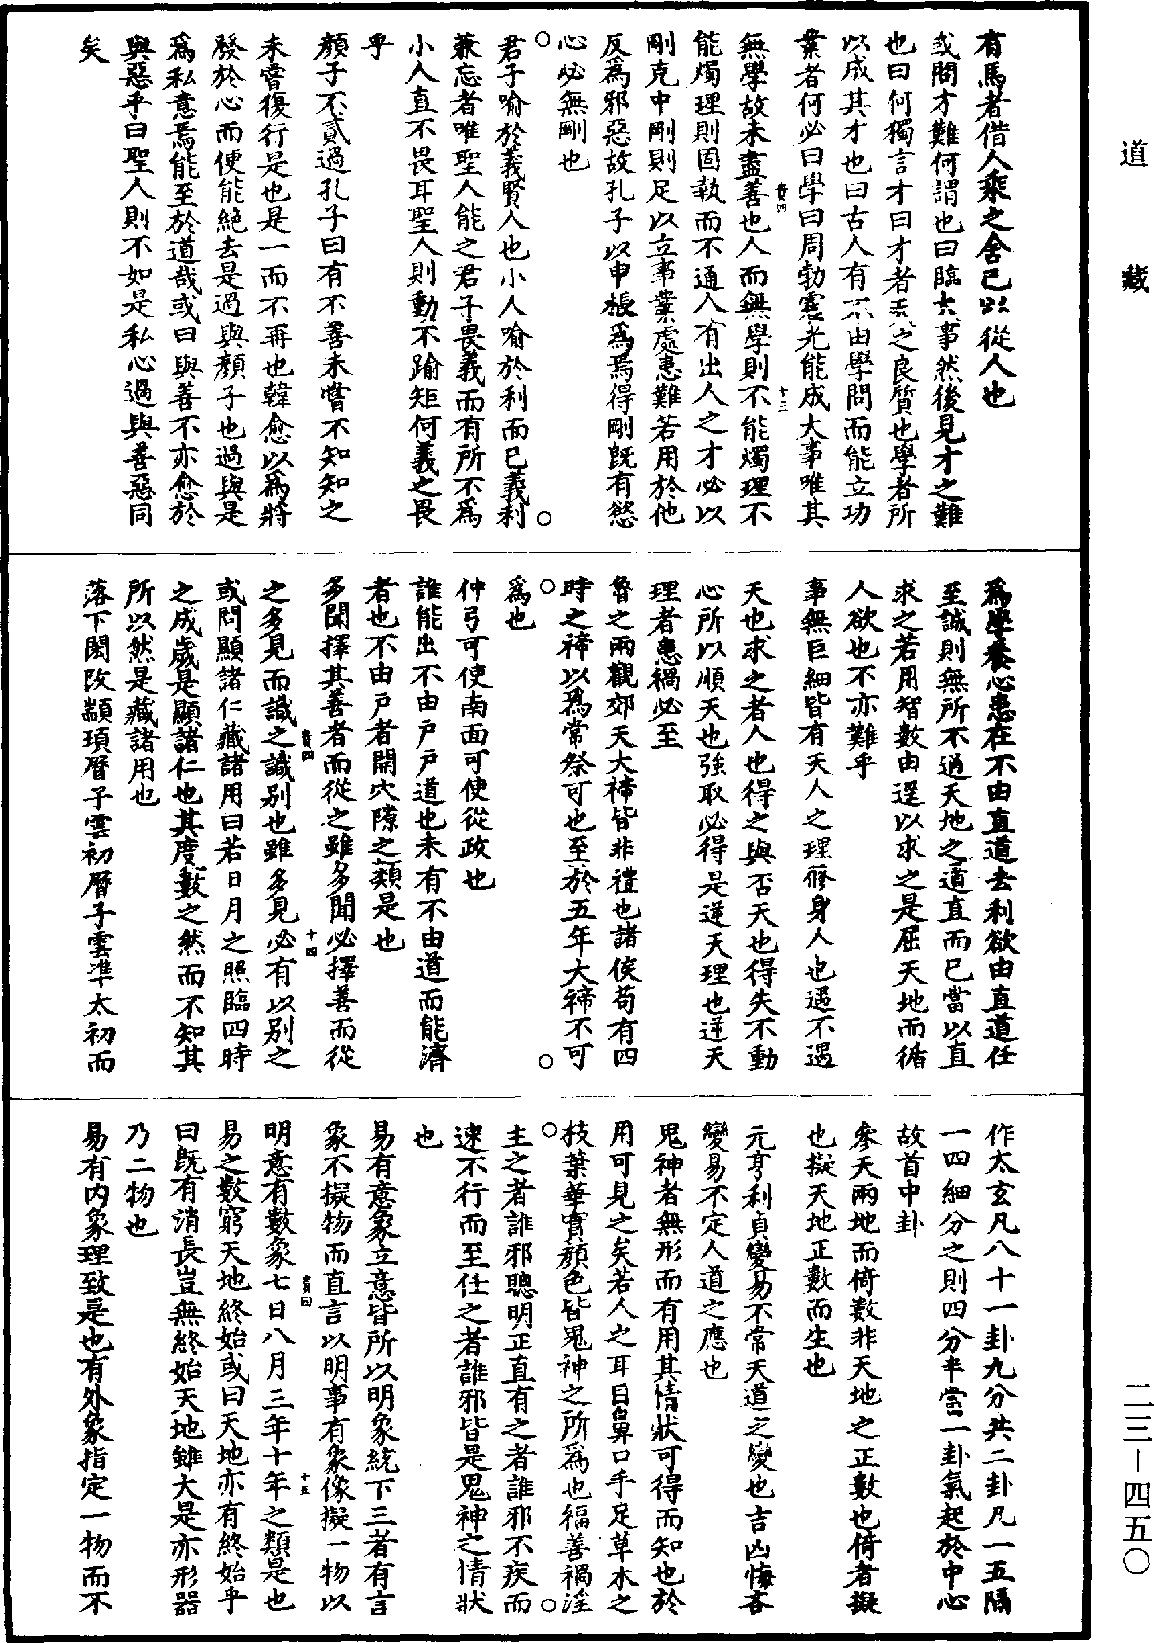 道藏
二三—四五〇
有馬者借人乘之舍己以從人也
或問才難何謂也曰臨大事然後見才之難
也曰何獨言才曰才者天之良質也學者所
以成其才也曰古人有不由學問而能立功
業者何必曰學曰周勃霍光能成大事唯其
無學故未盡善也人而無學則不能燭理不
能燭理則固執而不通人有出人之才必以
剛克中剛則足以立事業處患難若用於他
反為邪惡故孔子以申棖為焉得剛既有慾
心必無剛也
君子喻於義賢人也小人喻於利而已義利
兼忘者唯聖人能之君子畏義而有所不為
小人直不畏耳聖人則動不踰矩何義之畏
乎
顏子不貳過孔子曰有不善未嘗不知知之
未嘗復行是也是一而不再也韓愈以為將
發於心而便能絕去是過與顏子也過與是
為私意焉能至於道哉或曰與善不亦愈於
與惡乎曰聖人則不如是私心過與善惡同
矣
為學養心患在不由直道去利欲由直道任
至誠則無所不通天地之道直而已當以直
求之若用智數由逕以求之是屈天地而循
人欲也不亦難乎
事無巨細皆有天人之理脩身人也遇不遇
天也求之者人也得之與否天也得失不動
心所以順天也強取必得是逆天理也逆天
理者患禍必至
魯之兩觀郊天大禘皆非禮也諸侯苟有四
時之禘以為常祭可也至於五年大禘不可
為也
仲弓可使南面可使從政也
誰能出不由戶戶道也未有不由道而能濟
者也不由戶者開穴隙之類是也
多聞擇其善者而從之雖多聞必擇善而從
之多見而識之識別也雖多見必有以別之
或問顯諸仁藏諸用曰若日月之照臨四時
之成歲是顯諸仁也其度數之然而不知其
所以然是藏諸用也
落下閎改顓頊曆子雲初曆子雲準太初而
作太玄凡八十一卦九分共二卦凡一五隔
一四細分之則四分半當一卦氣起於中心
故首中卦
參天兩地而倚數非天地之正數也倚者擬
也擬天地正數而生也
元亨利貞變易不常天道之變也吉凶悔吝
變易不定人道之應也
鬼神者無形而有用其情狀可得而知也於
用可見之矣若人之耳目鼻口手足草木之
枝葉華實顏色皆鬼神之所為也福善禍淫
主之者誰邪聰明正直有之者誰邪不疾而
速不行而至任之者誰邪皆是鬼神之情狀
也
易有意象立意皆所以明象統下三者有言
象不擬物而直言以明事有象像擬一物以
明意有數象七日八月三年十年之類是也
易之數窮天地終始或曰天地亦有終始乎
曰既有消長豈無終始天地雖大是亦形器
乃二物也
易有內象理致是也有外象指定一物而不